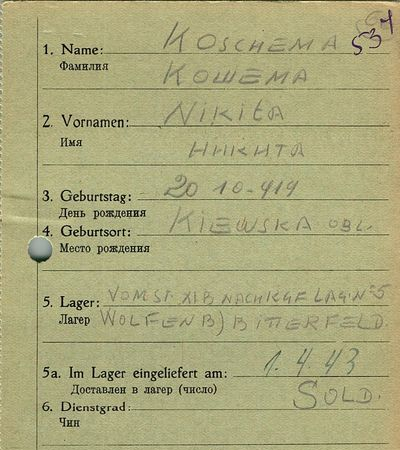 537
1. Name: KOSCHEMA
Фамилия
КОШЕМА
2. Vornamen: NiKitA
Имя
НИКИТА
3. Geburtstag: 20 10-919
День рождения
4. Geburtsort: KIEWSKA OBL.
Место рождения
5. Lager: VOM ST. XI B NACH KGF LAG N°5
Лагер WOLFEN B) BITTERFELD.
5a. Im Lager eingeliefert am: 1.4.43
Доставлен в лагер (число)
6. Dienstgrad: SOLD.
Чин